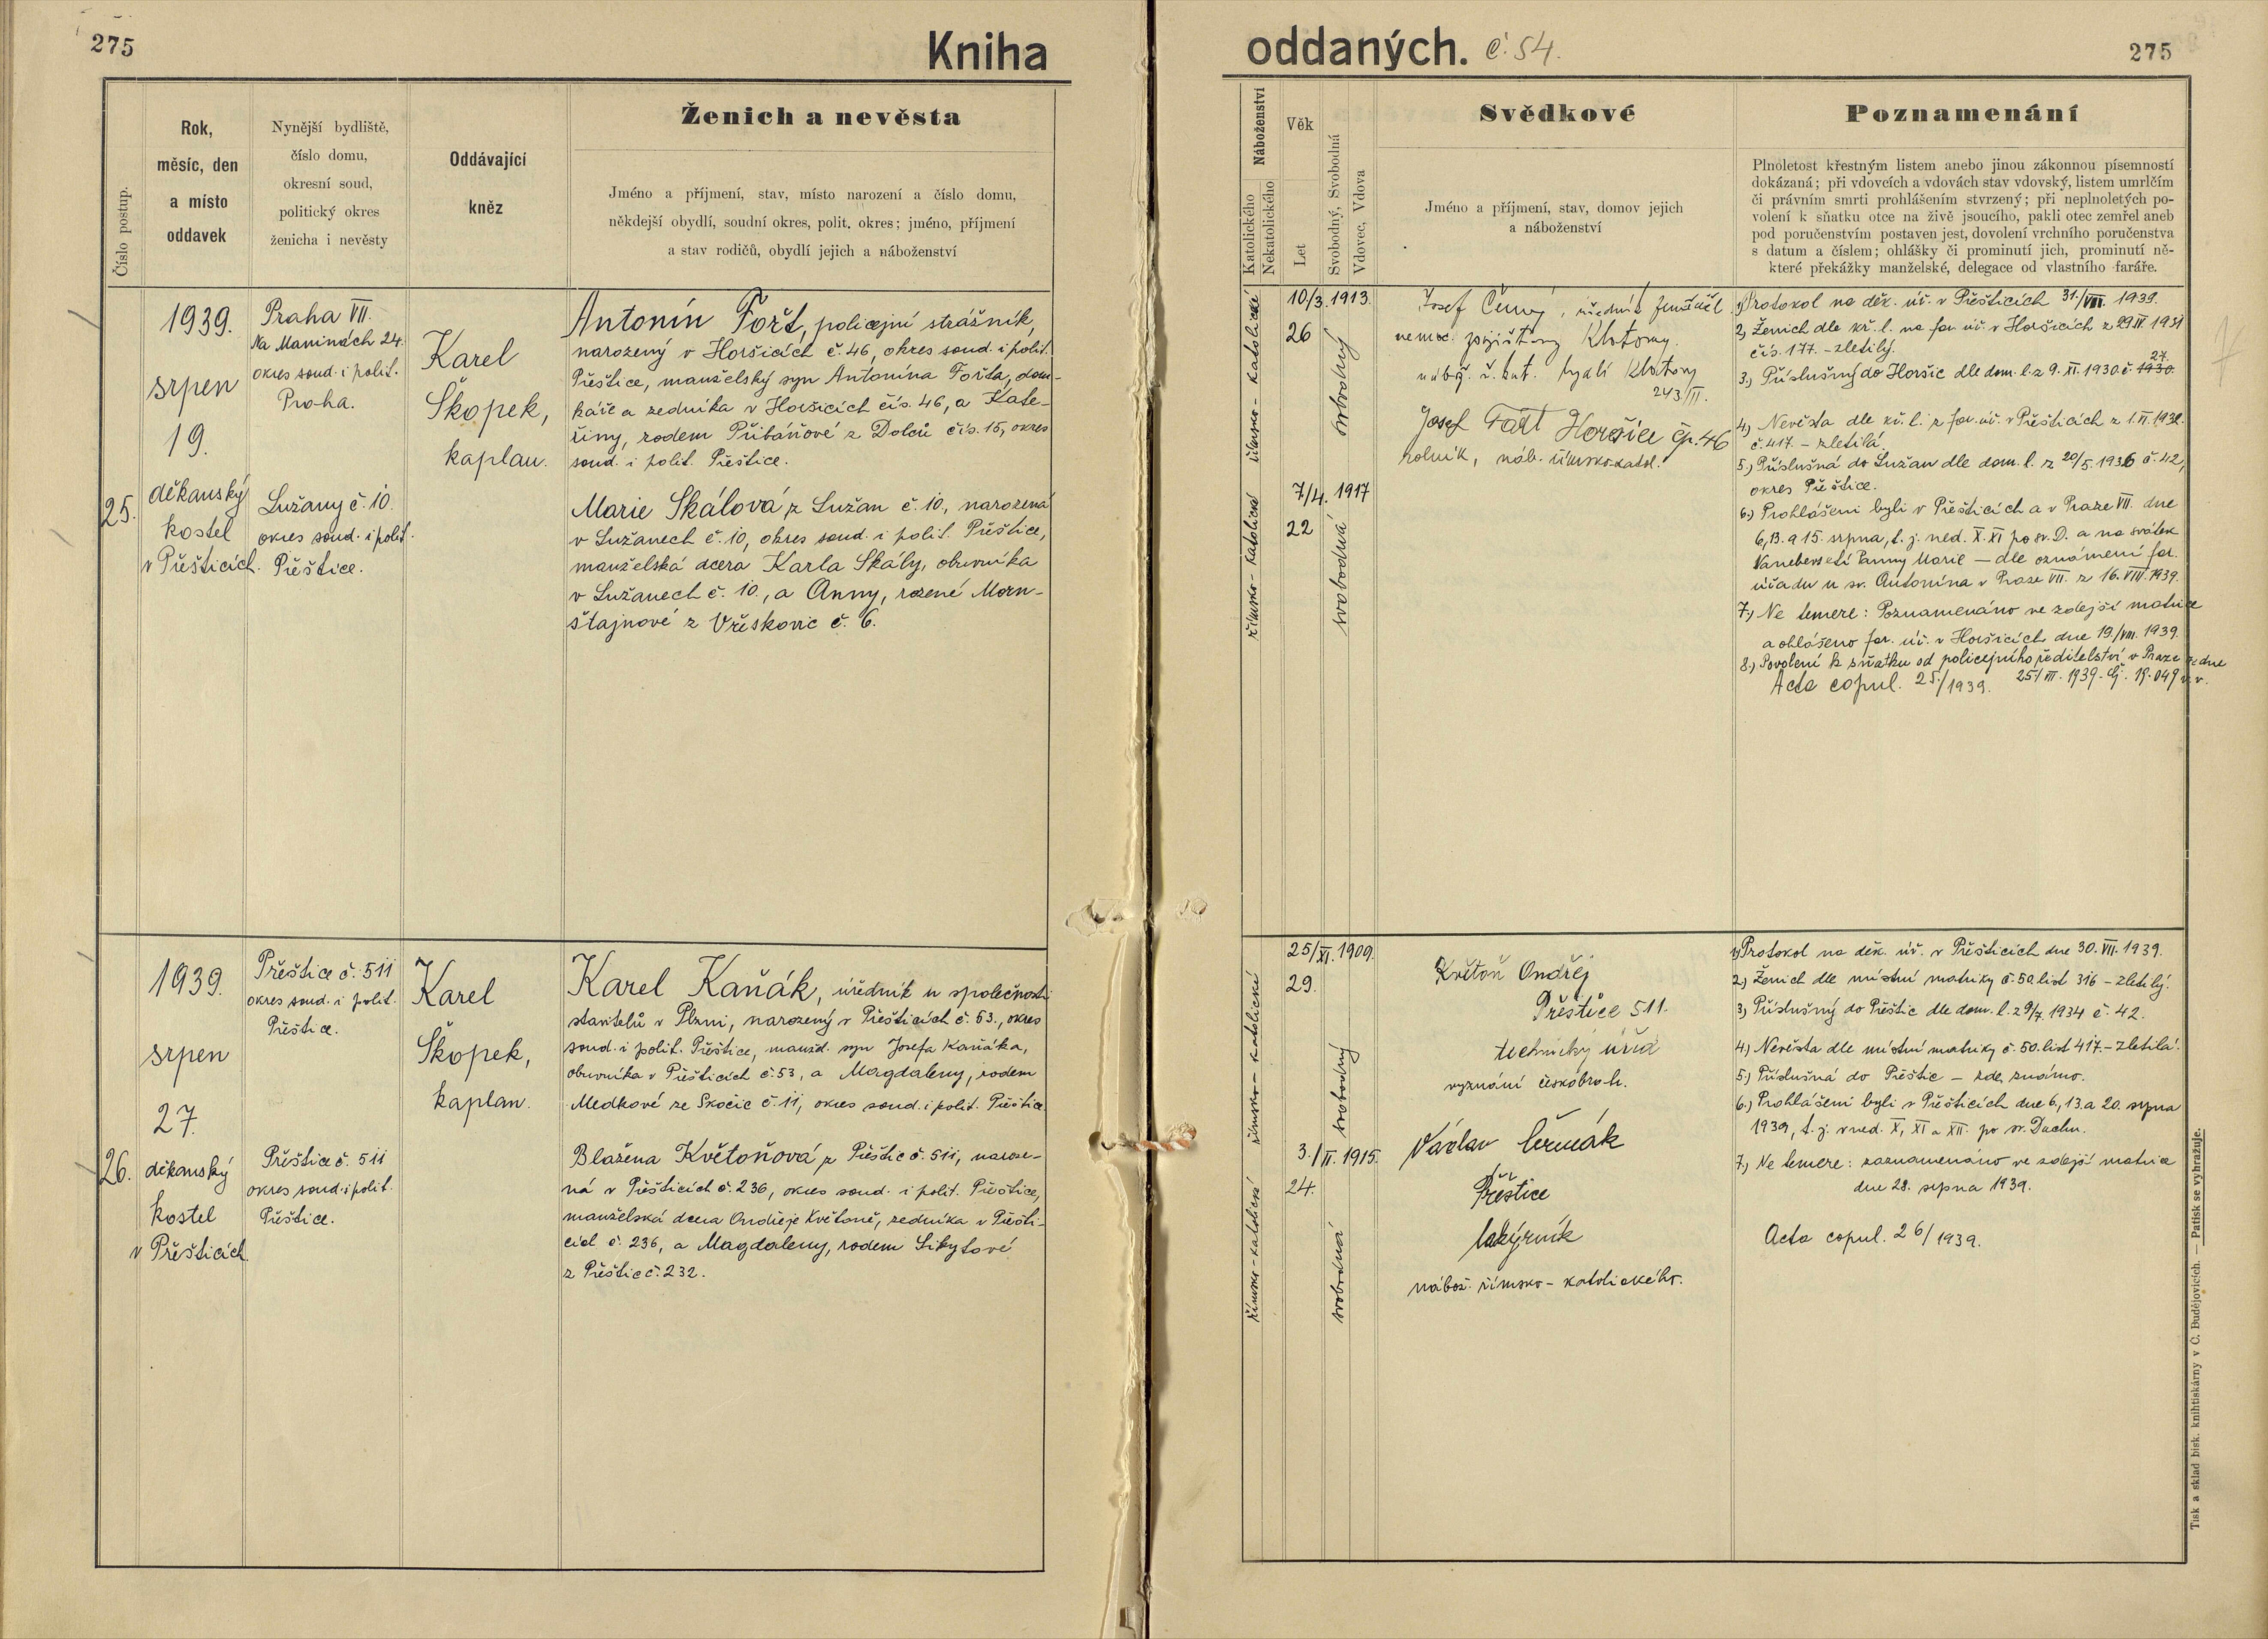 275
Kniha
Číslo postup.
Rok,
měsíc, den
a místo
oddavek
Nynější bydliště,
číslo domu,
okresní soud,
politický okres
ženicha i nevěsty
Oddávající
kněz
Ženich a nevěsta
Jméno a příjmení, stav, místo narození a číslo domu,
někdejší obydlí, soudní okres, polit. okres; jméno, příjmení
a stav rodičů, obydlí jejich a náboženství
25.
1939.
srpen
19.
děkanský
kostel
v Přešticích.
Praha VII.
Na Maninách 24.
okres soud. i polit.
Praha.
Lužany č. 10.
okres soud. i polit.
Přeštice.
Karel
Škopek,
kaplan.
Antonín Fořt, policejní strážník,
narozený v Horšicích č. 46, okres soud. i polit.
Přeštice, manželský syn Antonína Fořta, dom-
káře a zedníka v Horšicích čís. 46, a Kate-
řiny, rodem Přibáňové z Dolců čís. 15, okres
soud. i polit. Přeštice.
Marie Skálová, z Lužan č. 10, narozená
v Lužanech č. 10, okres soud. i polit. Přeštice,
manželská dcera Karla Skály, obuvníka
v Lužanech č. 10., a Anny, rozené Morn-
štajnové z Vřeskovic č. 6.
26.
1939.
srpen
27.
děkanský
kostel
v Přešticích.
Přeštice č. 511
okres soud. i polit.
Přeštice.
Přeštice č. 511
okres soud. i polit.
Přeštice.
Karel
Škopek,
kaplan.
Karel Kaňák, úředník u společnosti
stavitelů v Plzni, narozený v Přešticích č. 53., okres
soud. i polit. Přeštice, manžel. syn Josefa Kaňáka,
obuvníka v Přešticích č. 53, a Magdaleny, rodem
Medkové ze Skočic č. 11, okres soud. i polit. Přeštice.
Blažena Květoňová z Přeštic č. 511, naroze-
ná v Přešticích č. 236, okres soud. i polit. Přeštice,
manželská dcera Ondřeje Květoně, zedníka v Přešti-
cích č. 236, a Magdaleny, rodem Sikytové
z Přeštic č. 232.
oddaných. č. 54.
275
Náboženství
Katolického
Nekatolického
Věk
Let
Svobodný, Svobodná
Vdovec, Vdova
Svědkové
Jméno a příjmení, stav, domov jejich
a náboženství
Poznamenání
Plnoletost křestným listem anebo jinou zákonnou písemností
dokázaná; při vdovcích a vdovách stav vdovský, listem umrlčím
či právním smrti prohlášením stvrzený; při neplnoletých po-
volení k sňatku otce na živě jsoucího, pakli otec zemřel aneb
pod poručenstvím postaven jest, dovolení vrchního poručenstva
s datum a číslem; ohlášky či prominutí jich, prominutí ně-
které překážky manželské, delegace od vlastního faráře.
římsko-katolické
10/3. 1913.
26
svobodný
římsko-katolická
7/4. 1917
22
svobodná
Josef Černý, úředník zeměděl.
nemoc. pojišťovny Klatovy.
nábož. ř. kat. bydlí Klatovy
243/II.
Josef Fořt Horšice čp. 46
rolník, náb. římsko-katol.
1) Protokol na děk. úř. v Přešticích 31./VII. 1939.
2) Ženich dle kř. l. na far. úř. v Horšicích z 29. IV 1931
čís. 177. - zletilý.
3.) Příslušný do Horšic dle dom. l. z 9. XI. 1930. č. 1930. 27.
4.) Nevěsta dle kř. l. z far. úř. v Přešticích z 1. VI. 1932.
č. 417. - zletilá.
5.) Příslušná do Lužan dle dom. l. z 20/5. 1936 č. 42,
okres Přeštice.
6.) Prohlášeni byli v Přešticích a v Praze VII. dne
6, 13. a 15. srpna, t. j. ned. X. XI po sv. D. a na svátek
Nanebevzetí Panny Marie — dle oznámení far.
úřadu u sv. Antonína v Praze VII. z 16. VIII. 1939.
7.) Ne temere: Poznamenáno ve zdejší matrice
a ohlášeno far. úř. v Horšicích dne 19./VIII. 1939.
8.) Povolení k sňatku od policejního ředitelství v Praze ze dne
25/VII. 1939. čj. 19.049 v. v.
Acta copul. 25./1939.
římsko-katolické
25/XI. 1909.
29.
svobodný
římsko-katolické
3./II. 1915.
24.
svobodná
Květoň Ondřej
Přeštice 511.
technický úřed
vyznání českobrat.
Václav Čermák
Přeštice
lakýrník
nábož. římsko-katolického.
1) Protokol na děk. úř. v Přešticích dne 30. VII. 1939.
2.) Ženich dle místní matriky č. 50. list 316 - zletilý.
3.) Příslušný do Přeštic dle dom. l. z 9/7. 1934 č. 42.
4.) Nevěsta dle místní matriky č. 50. list 417. - zletilá.
5.) Příslušná do Přeštic — zde, známo.
6.) Prohlášeni byli v Přešticích dne 6., 13. a 20. srpna
1939, t. j. v ned. X, XI a XII. po sv. Duchu.
7.) Ne temere: zaznamenáno ve zdejší matrice
dne 28. srpna 1939.
Acta copul. 26/1939.
Tisk a sklad bisk. knihtiskárny v Č. Budějovicích. — Patisk se vyhražuje.